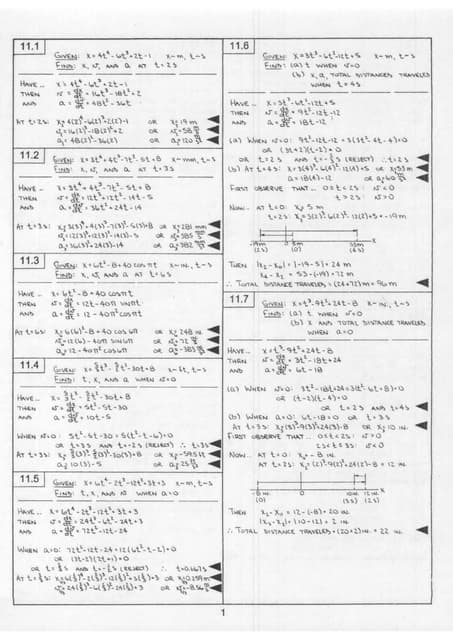 11.1
GIVEN: x=4t⁴-6t³+2t-1 x~m, t~s
FIND: x, v, AND a AT t=2s
HAVE.. x=4t⁴-6t³+2t-1
THEN v=dx/dt=16t³-18t²+2
AND a=dv/dt=48t²-36t
AT t=2s: x₂=4(2)⁴-6(2)³+2(2)-1 OR x₂=19 m
v₂=16(2)³-18(2)²+2 OR v₂=58 m/s
a₂=48(2)²-36(2) OR a₂=120 m/s²
11.2
GIVEN: x=3t⁴+4t³-7t²-5t+8 x~mm, t~s
FIND: x, v, AND a AT t=3s
HAVE.. x=3t⁴+4t³-7t²-5t+8
THEN v=dx/dt=12t³+12t²-14t-5
AND a=dv/dt=36t²+24t-14
AT t=3s: x₃=3(3)⁴+4(3)³-7(3)²-5(3)+8 OR x₃=281 mm
v₃=12(3)³+12(3)²-14(3)-5 OR v₃=385 mm/s
a₃=36(3)²+24(3)-14 OR a₃=382 mm/s²
11.3
GIVEN: x=6t²-8+40 cosπt x~IN., t~s
FIND: x, v, AND a AT t=6s
HAVE.. x=6t²-8+40 cosπt
THEN v=dx/dt=12t-40π sinπt
AND a=dv/dt=12-40π²cosπt
AT t=6s: x₆=6(6)²-8+40 cos6π OR x₆=248 IN.
v₆=12(6)-40π sin6π OR v₆=72 IN./s
a₆=12-40π²cos6π OR a₆=-383 IN./s²
11.4
GIVEN: x=5/3t³-5/2t²-30t+8 x~ft, t~s
FIND: t, x, AND a WHEN v=0
HAVE.. x=5/3t³-5/2t²-30t+8
THEN v=dx/dt=5t²-5t-30
AND a=dv/dt=10t-5
WHEN v=0: 5t²-5t-30=5(t²-t-6)=0
OR t=3s AND t=-2s (REJECT) ∴ t=3s
AT t=3s: x₃=5/3(3)³-5/2(3)²-30(3)+8 OR x₃=-59.5 ft
a₃=10(3)-5 OR a₃=25 ft/s²
11.5
GIVEN: x=6t⁴-2t³-12t²+3t+3 x~m, t~s
FIND: t, x, AND v WHEN a=0
HAVE.. x=6t⁴-2t³-12t²+3t+3
THEN v=dx/dt=24t³-6t²-24t+3
AND a=dv/dt=72t²-12t-24
WHEN a=0: 72t²-12t-24=12(6t²-t-2)=0
OR (3t-2)(2t+1)=0
OR t=2/3s AND t=-1/2s (REJECT) ∴ t=0.667s
AT t=2/3s: x=6(2/3)⁴-2(2/3)³-12(2/3)²+3(2/3)+3 OR x=0.259 m
v=24(2/3)³-6(2/3)²-24(2/3)+3 OR v=-8.56 m/s
11.6
GIVEN: x=3t³-6t²-12t+5 x~m, t~s
FIND: (a) t WHEN v=0
(b) x, a, TOTAL DISTANCE TRAVELED
WHEN t=4s
HAVE.. x=3t³-6t²-12t+5
THEN v=dx/dt=9t²-12t-12
AND a=dv/dt=18t-12
(a) WHEN v=0: 9t²-12t-12=3(3t²-4t-4)=0
OR (3t+2)(t-2)=0
OR t=2s AND t=-2/3s (REJECT) ∴ t=2s
(b) AT t=4s: x₄=3(4)³-6(4)²-12(4)+5 OR x₄=53m
a₄=18(4)-12 OR a₄=60 m/s²
FIRST OBSERVE THAT.. 0≤t<2s: v<0
t>2s: v>0
NOW.. AT t=0: x₀=5 m
t=2s: x₂=3(2)³-6(2)²-12(2)+5=-19m
-19m 0 5m 53m x
(2s) (0) (4s)
THEN |x₂-x₀|=|-19-5|=24 m
x₄-x₂=53-(-19)=72 m
∴ TOTAL DISTANCE TRAVELED=(24+72)m=96m
11.7
GIVEN: x=t³-9t²+24t-8 x~IN., t~s
FIND: (a) t WHEN v=0
(b) x AND TOTAL DISTANCE TRAVELED
WHEN a=0
HAVE.. x=t³-9t²+24t-8
THEN v=dx/dt=3t²-18t+24
AND a=dv/dt=6t-18
(a) WHEN v=0: 3t²-18t+24=3(t²-6t+8)=0
OR (t-2)(t-4)=0
OR t=2s AND t=4s
(b) WHEN a=0: 6t-18=0 OR t=3s
AT t=3s: x₃=(3)³-9(3)²+24(3)-8 OR x₃=10 IN.
FIRST OBSERVE THAT.. 0≤t<2s: v>0
2s<t≤3s: v<0
NOW.. AT t=0: x₀=-8 IN.
AT t=2s: x₂=(2)³-9(2)²+24(2)-8=12 IN.
-8 IN. 0 10IN. 12 IN. x
(0) (3s) (2s)
THEN x₂-x₀=12-(-8)=20 IN.
|x₃-x₂|=|10-12|=2 IN.
∴ TOTAL DISTANCE TRAVELED=(20+2)IN.=22 IN.
1